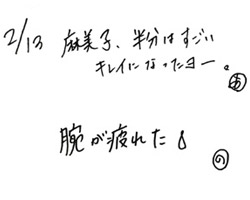 2/13 麻美子、半分はすごい
キレイになったヨー。
あ
腕が疲れた
の